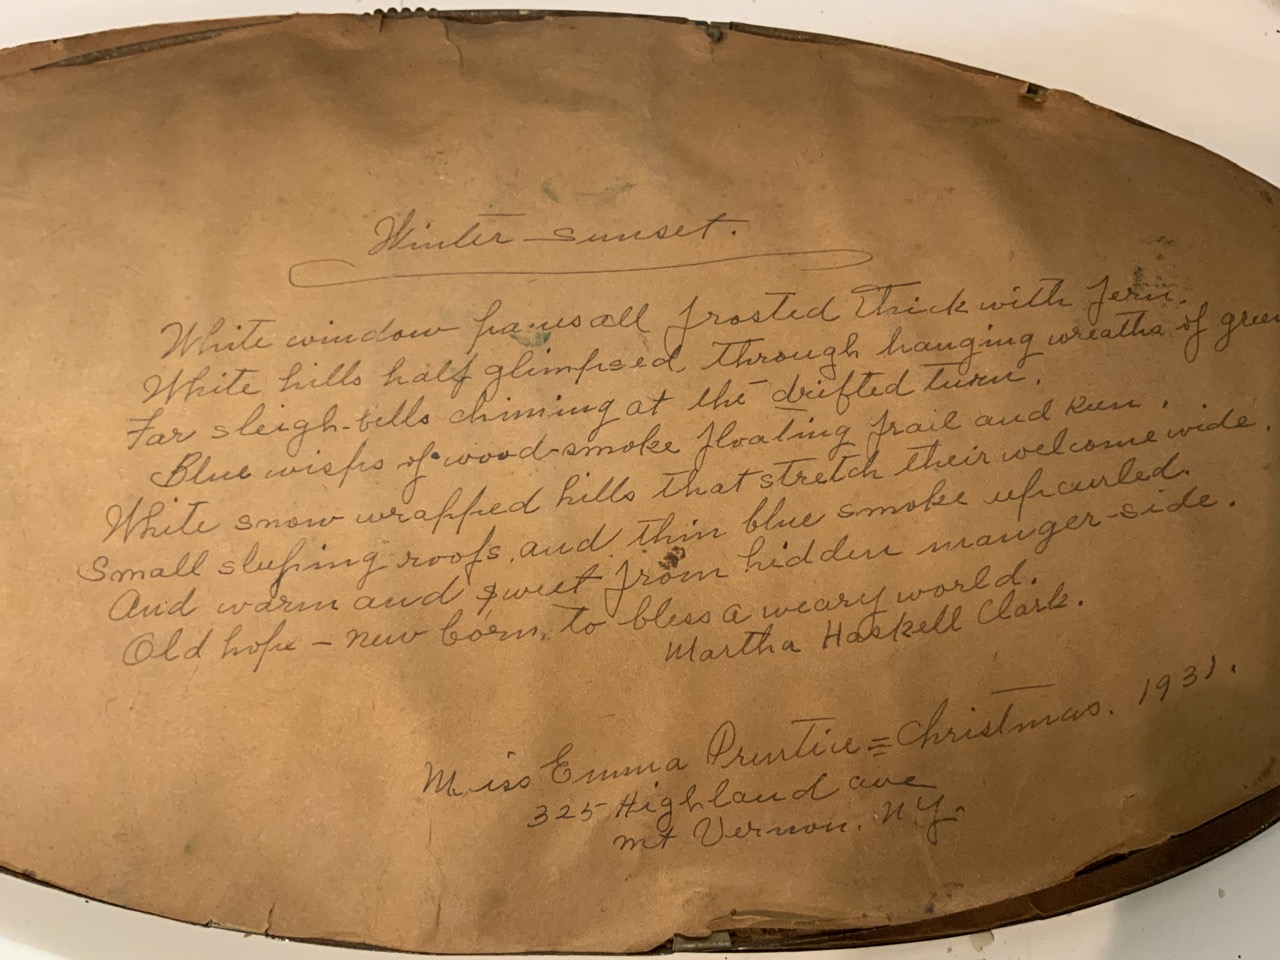 Winter-sunset.
White window panes all frosted thick with fern.
White hills half glimpsed, through hanging wreaths of green
Far sleigh-bells chiming at the drifted turn.
Blue wisps of wood-smoke floating frail and keen.
White snow wrapped hills that stretch their welcome wide.
Small sleeping roofs, and thin blue smoke upcurled.
And warm and sweet from hidden manger-side.
Old hope - new born, to bless a weary world.
Martha Haskell Clark.
Miss Emma Prentice = Christmas. 1931.
325 Highland ave
Mt Vernon. N.Y.